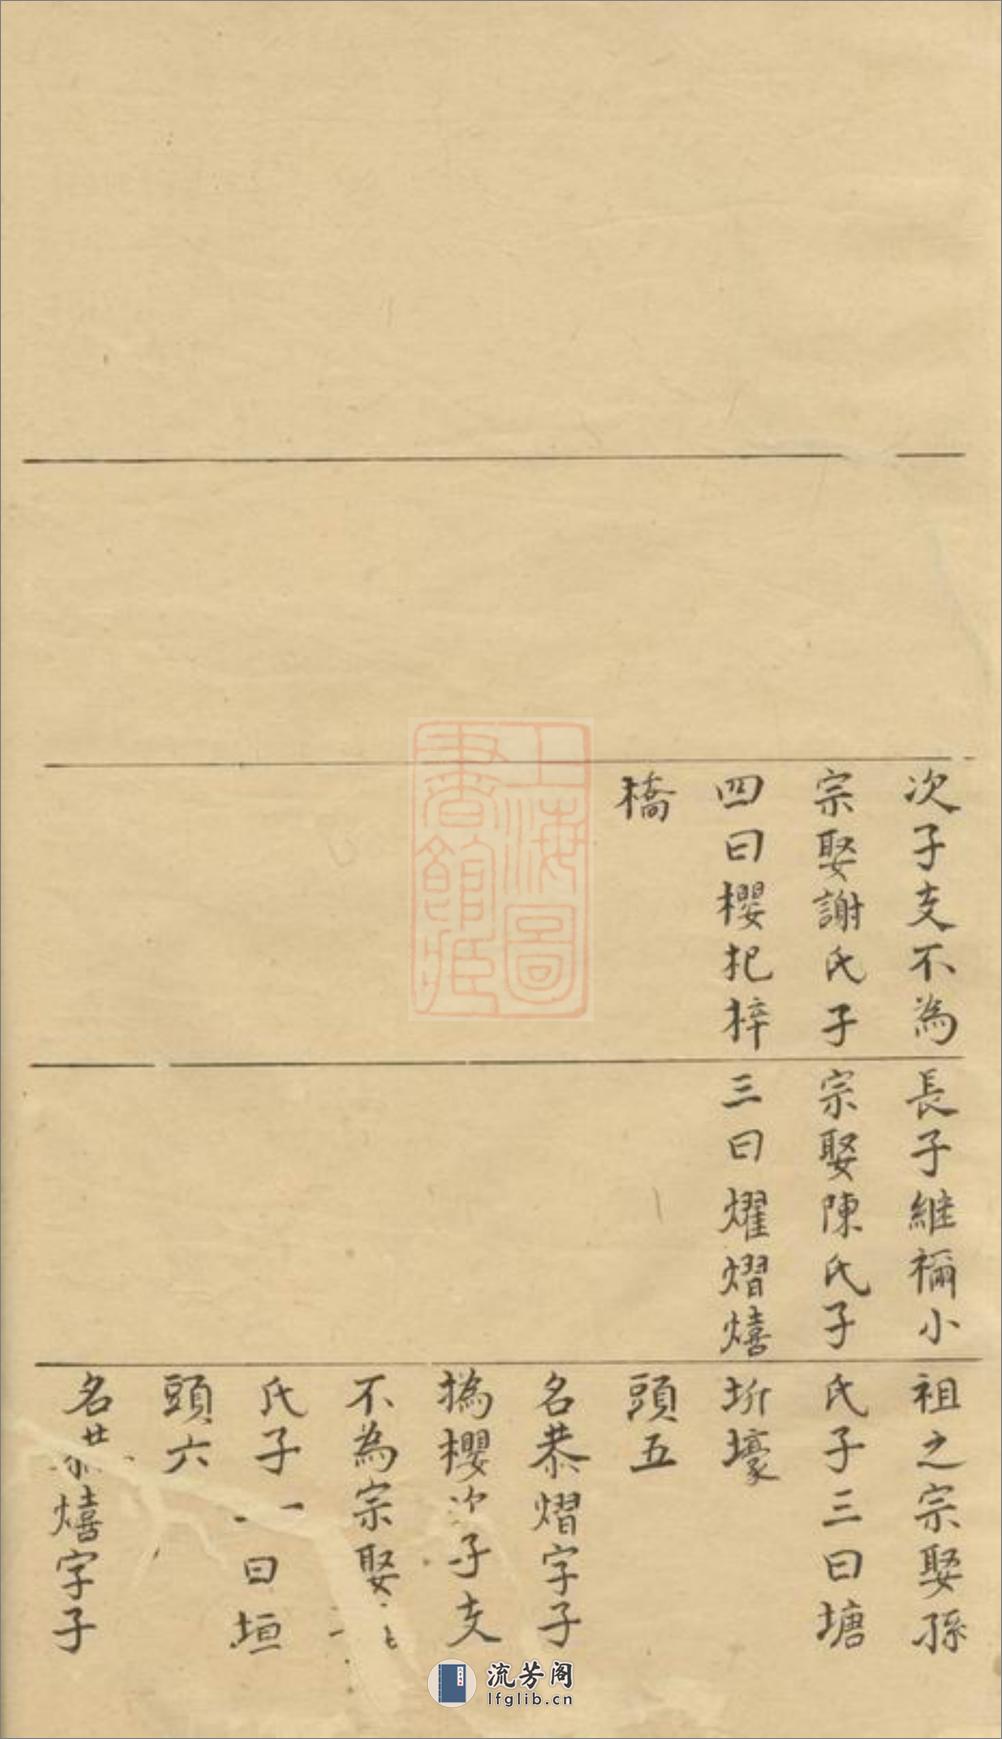 次子支不為
宗娶謝氏子
四曰櫻杞梓
橋
長子継禰小
宗娶陳氏子
三曰燿熠熺
祖之宗娶孫
氏子三曰塘
圻壕
頭五
名恭熠字子
撝櫻次子支
不為宗娶
氏子一曰垣
頭六
名恭熺字子
上海圖
書館藏
流芳阁
lfglib.cn